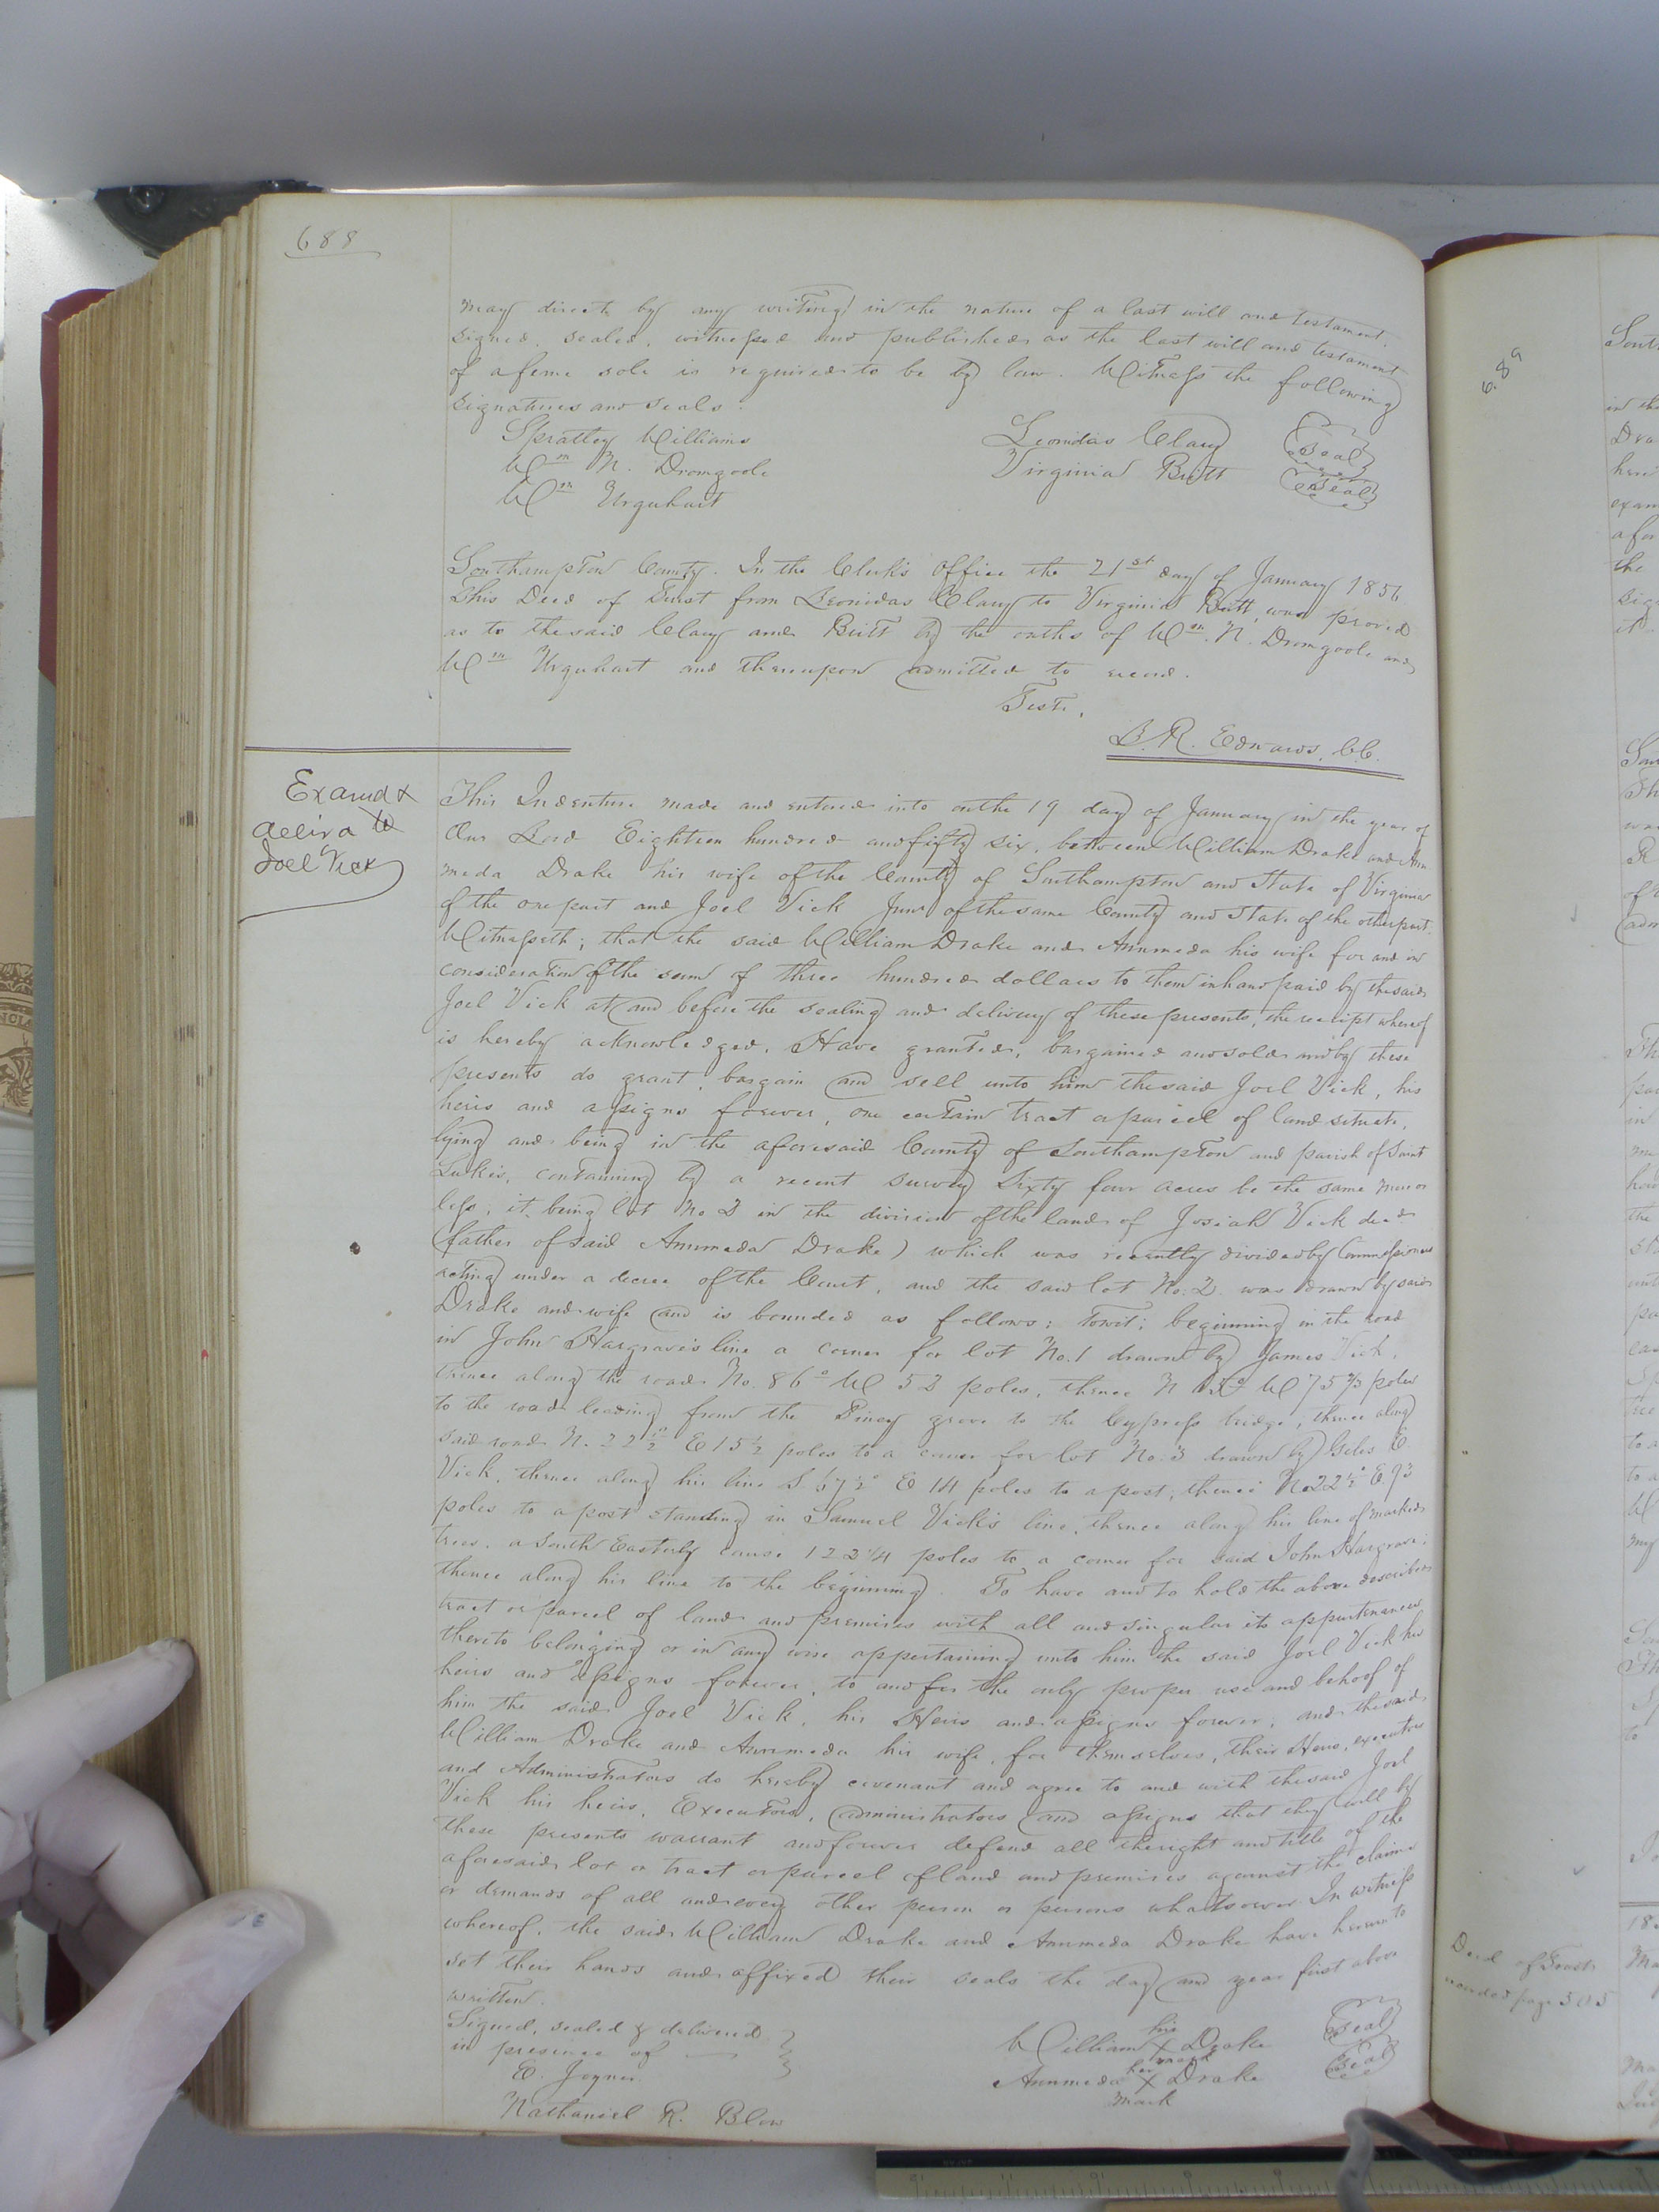 688
may direct by any writing in the nature of a last will and testament,
signed, sealed, witnessed and published as the last will and testament
of a feme sole is required to be by law. Witness the following
signatures and seals.
Spratley Williams
Leonidas Clary Seal
Wm N. Dromgoole
Virginia Butt Seal
Wm Urquhart
Southampton County. In the Clerk's Office the 21st day of January 1856
This Deed of Trust from Leonidas Clary to Virginia Butt, was proved
as to the said Clary and Butt by the oaths of Wm. N. Dromgoole and
Wm Urquhart and thereupon admitted to record.
Teste,
L. R. Edwards, C.C.
Examd &
Joel Vick
This Indenture made and entered into on the 19 day of January in the year of
Our Lord Eighteen hundred and fifty six, between William Drake and Ann
meda Drake his wife of the County of Southampton and State of Virginia
of the one part and Joel Vick Junr of the same County and State of the other part.
Witnesseth; that the said William Drake and Annmeda his wife for and in
consideration of the sum of three hundred dollars to them in hand paid by the said
Joel Vick at and before the sealing and delivery of these presents, the receipt whereof
is hereby acknowledged, Have granted, bargained and sold and by these
presents do grant, bargain and sell unto him the said Joel Vick, his
heirs and assigns forever, one certain tract or parcel of land situate,
lying and being in the aforesaid County of Southampton and parish of Saint
Luke's, containing by a recent survey Sixty four acres be the same more or
less, it being lot No 2 in the division of the land of Josiah Vick decd
(father of said Annmeda Drake) which was recently divided by Commissioners
acting under a decree of the Court, and the said lot No. 2 was drawn by said
Drake and wife and is bounded as follows: towit; beginning in the road
in John Hargrave's line a corner for lot No. 1 drawn by James Vick,
thence along the road No. 86° W 52 poles, thence N W 75 poles
to the road leading from the Piney grove to the Cypress bridge, thence along
said road N. 22½° E 15½ poles to a corner for lot No. 3 drawn by Giles E
Vick, thence along his line S. 67½° E 14 poles to a post; thence No 22½° E. 93
poles to a post standing in Samuel Vick's line, thence along his line of marked
trees, a South Easterly course 122¼ poles to a corner for said John Hargrave;
thence along his line to the beginning. To have and to hold the above described
tract or parcel of land and premises with all and singular its appurtenances
thereto belonging or in any wise appertaining unto him the said Joel Vick his
heirs and assigns forever, to and for the only proper use and behoof of
him the said Joel Vick, his Heirs and assigns forever; and the said
William Drake and Annmeda his wife, for themselves, their Heirs, executors
and Administrators do hereby covenant and agree to and with the said Joel
Vick his heirs, Executors, administrators and assigns that they will by
these presents warrant and forever defend all the right and title of the
aforesaid lot or tract or parcel of land and premises against the claims
or demands of all and every other person or persons whatsoever. In witness
whereof, the said William Drake and Annmeda Drake have hereunto
set their hands and affixed their seals the day and year first above
written.
Signed, sealed & delivered
in presence of
William his X mark Drake Seal
E. Joyner
Annmeda her X mark Drake Seal
Nathaniel R. Blow
689
Deed of Trust
recorded page 505